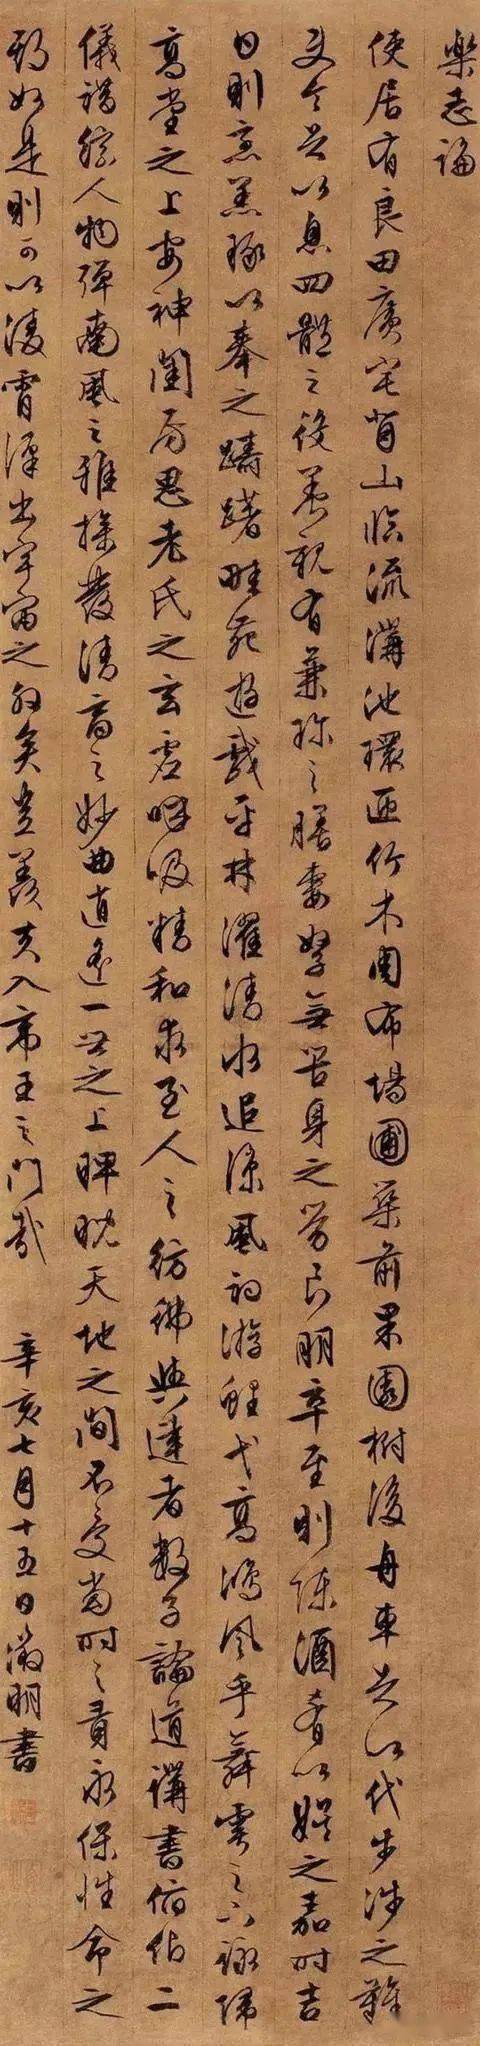 樂志論
使居有良田廣宅背山臨流溝池環匝竹木周布場圃築前果園樹後舟車足以代步涉之難
使令足以息四體之役養親有兼珍之膳妻孥無苦身之勞良朋卒至則陳酒肴以娛之嘉時吉
日則烹羔豚以奉之躊躇畦苑遊戲平林濯清水追涼風釣游鯉弋高鴻風乎舞雩之下詠歸
高堂之上安神閨房思老氏之玄虛呼吸精和求至人之彷彿與達者數子論道講書俯仰二
儀錯綜人物彈南風之雅操發清商之妙曲逍遙一世之上睥睨天地之間不受當時之責永保性命之
期如是則可以凌霄漢出宇宙之外矣豈羨夫入帝王之門哉 辛亥七月十五日徵明書